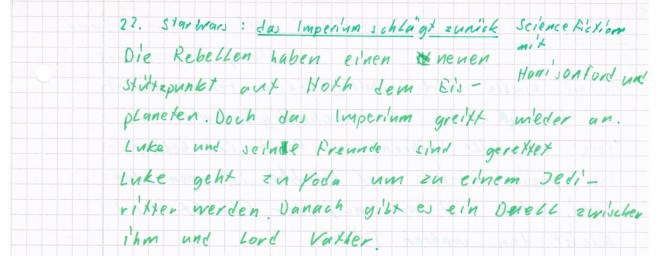 22. Starwars : das Imperium schlägt zurück Science Fiction
mit
Die Rebellen haben einen neuen Harrisonford und
stützpunkt auf Hoth dem Eis-
planeten. Doch das Imperium greift wieder an.
Luke und seine Freunde sind gerettet
Luke geht zu Yoda um zu einem Jedi-
ritter werden. Danach gibt es ein Duell zwischen
ihm und Lord Vather.